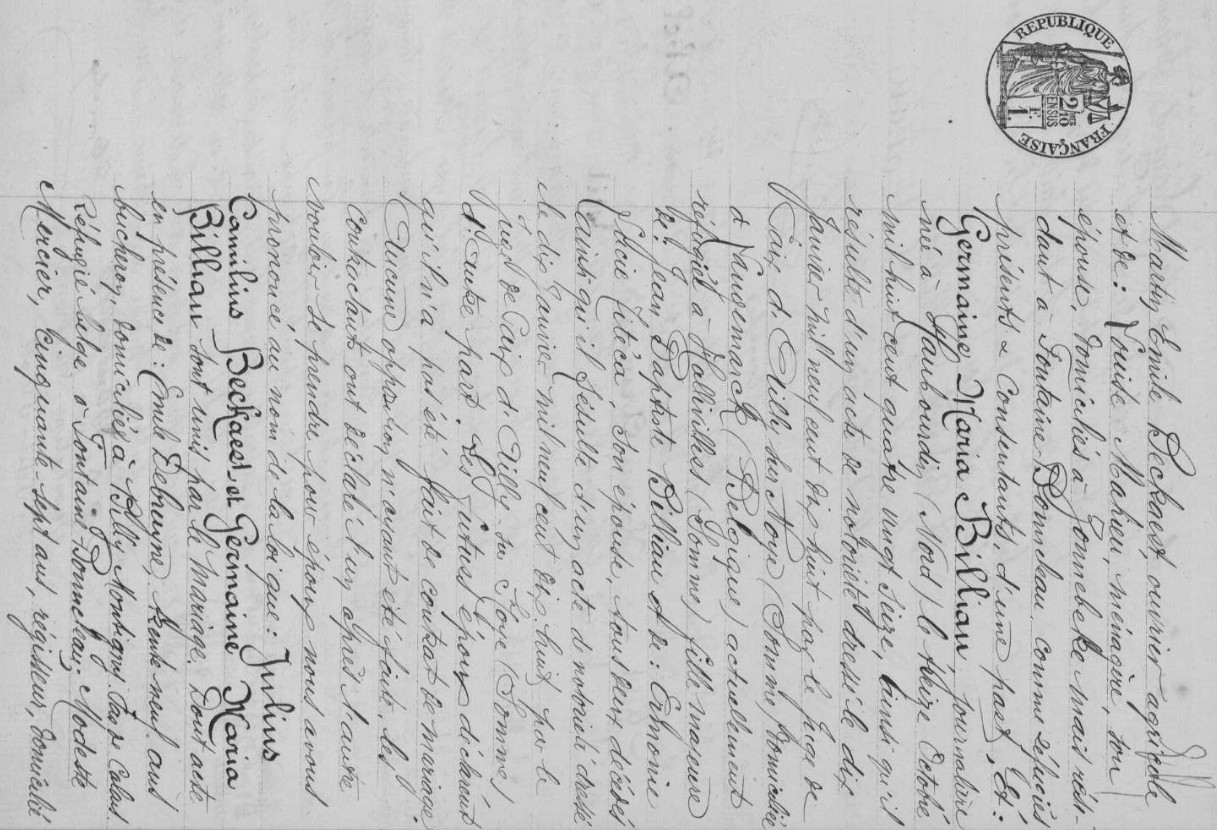 REPUBLIQUE FRANÇAISE
2/10es
EN SUS
1 F.
Martin Emile Beckaert, ouvrier agricole
et de: Louise Mahieu, ménagère, son
épouse, domiciliés à Zonnebeke mais rési-
dant à Fontaine-Bonneleau comme réfugiés
présents & consentants, d'une part, Et:
Germaine Maria Billiau journalière
née à Haubourdin (Nord) le treize Octobre
mil huit cent quatre vingt seize, ainsi qu'il
résulte d'un acte de notoriété dressé le dix
Janvier mil neuf cent dix huit par le Juge de
Paix d'Ailly sur Noye (Somme) domiciliée
à (Belgique) actuellement
réfugiée à (Somme) fille majeure
de: Jean Baptiste Billiau et de:
son épouse, tous deux décédés
(ainsi qu'il résulte d'un acte de notoriété dressé
le dix Janvier mil neuf cent dix-huit par le
Juge de Paix d'Ailly-sur-Noye (Somme)
d'autre part. Les futurs époux déclarent
qu'il n'a pas été fait de contrat de mariage
Aucune opposition n'ayant été faite, les
contractants ont déclaré l'un après l'autre
vouloir se prendre pour époux nous avons
prononcé au nom de la loi que: Julius
Camilius Beckaert et Germaine Maria
Billiau sont unis par le mariage. Dont acte
en présence de: Emile Debruyne, trente neuf ans
bucheron, domicilié à Billy Montigny Pas de Calais
Réfugié belge à Fontaine-Bonneleau; Modeste
Mercier, Cinquante-sept ans, régisseur, domicilié